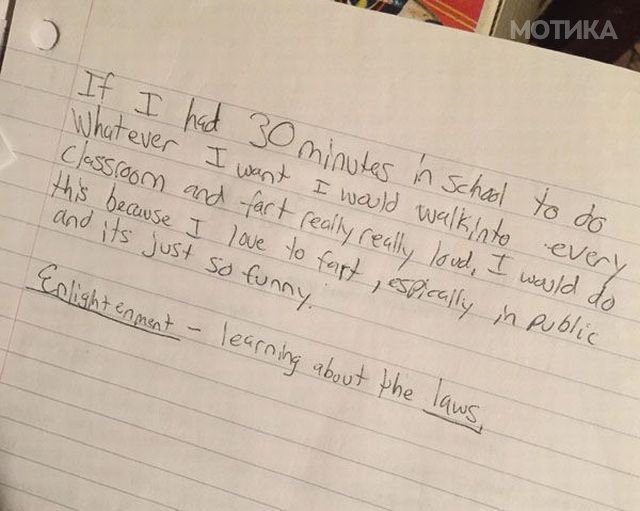 МОТИКА
If I had 30 minutes in school to do
whatever I want I would walk into every
classroom and fart really really loud, I would do
this because I love to fart, espically in public
and its just so funny.
Enlightenment - learning about the laws.